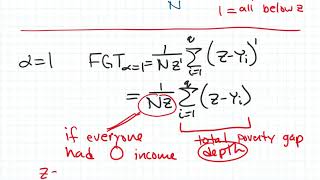 N
1 = all below z
α=1 FGT_{α=1} = \frac{1}{Nz^1} \sum_{i=1}^{q} (z-Y_i)^1
= \frac{1}{Nz} \sum_{i=1}^{q} (z-Y_i)
if everyone total poverty gap
had 0 income depth
z-